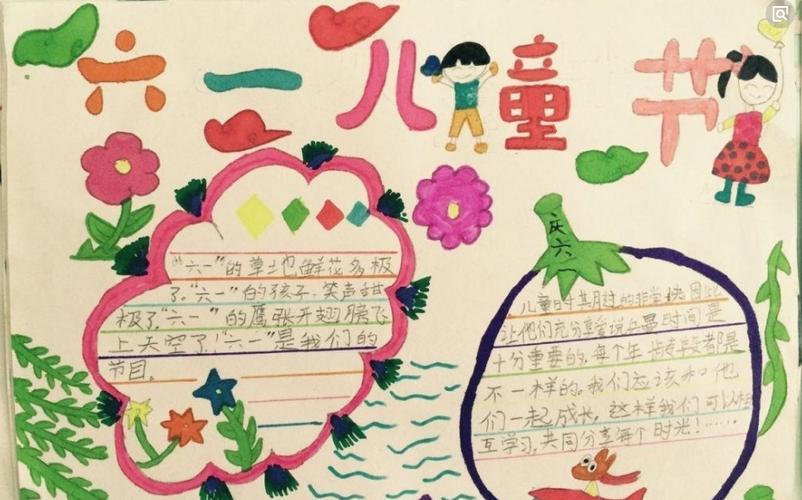 六一儿童节
"六一"的草地鲜花多极
了,"六一"的孩子,笑声甜
极了,"六一"的鹰张开翅膀飞
上天空了!"六一"是我们的
节目。
庆六一
儿童时期过的非常快,因此
让他们充分享受说
时间是
十分重要的,每个年
段都是
不一样的。我们应该和他
们一起成长,这样我们可以相
互学习,共同分享每个时光!……